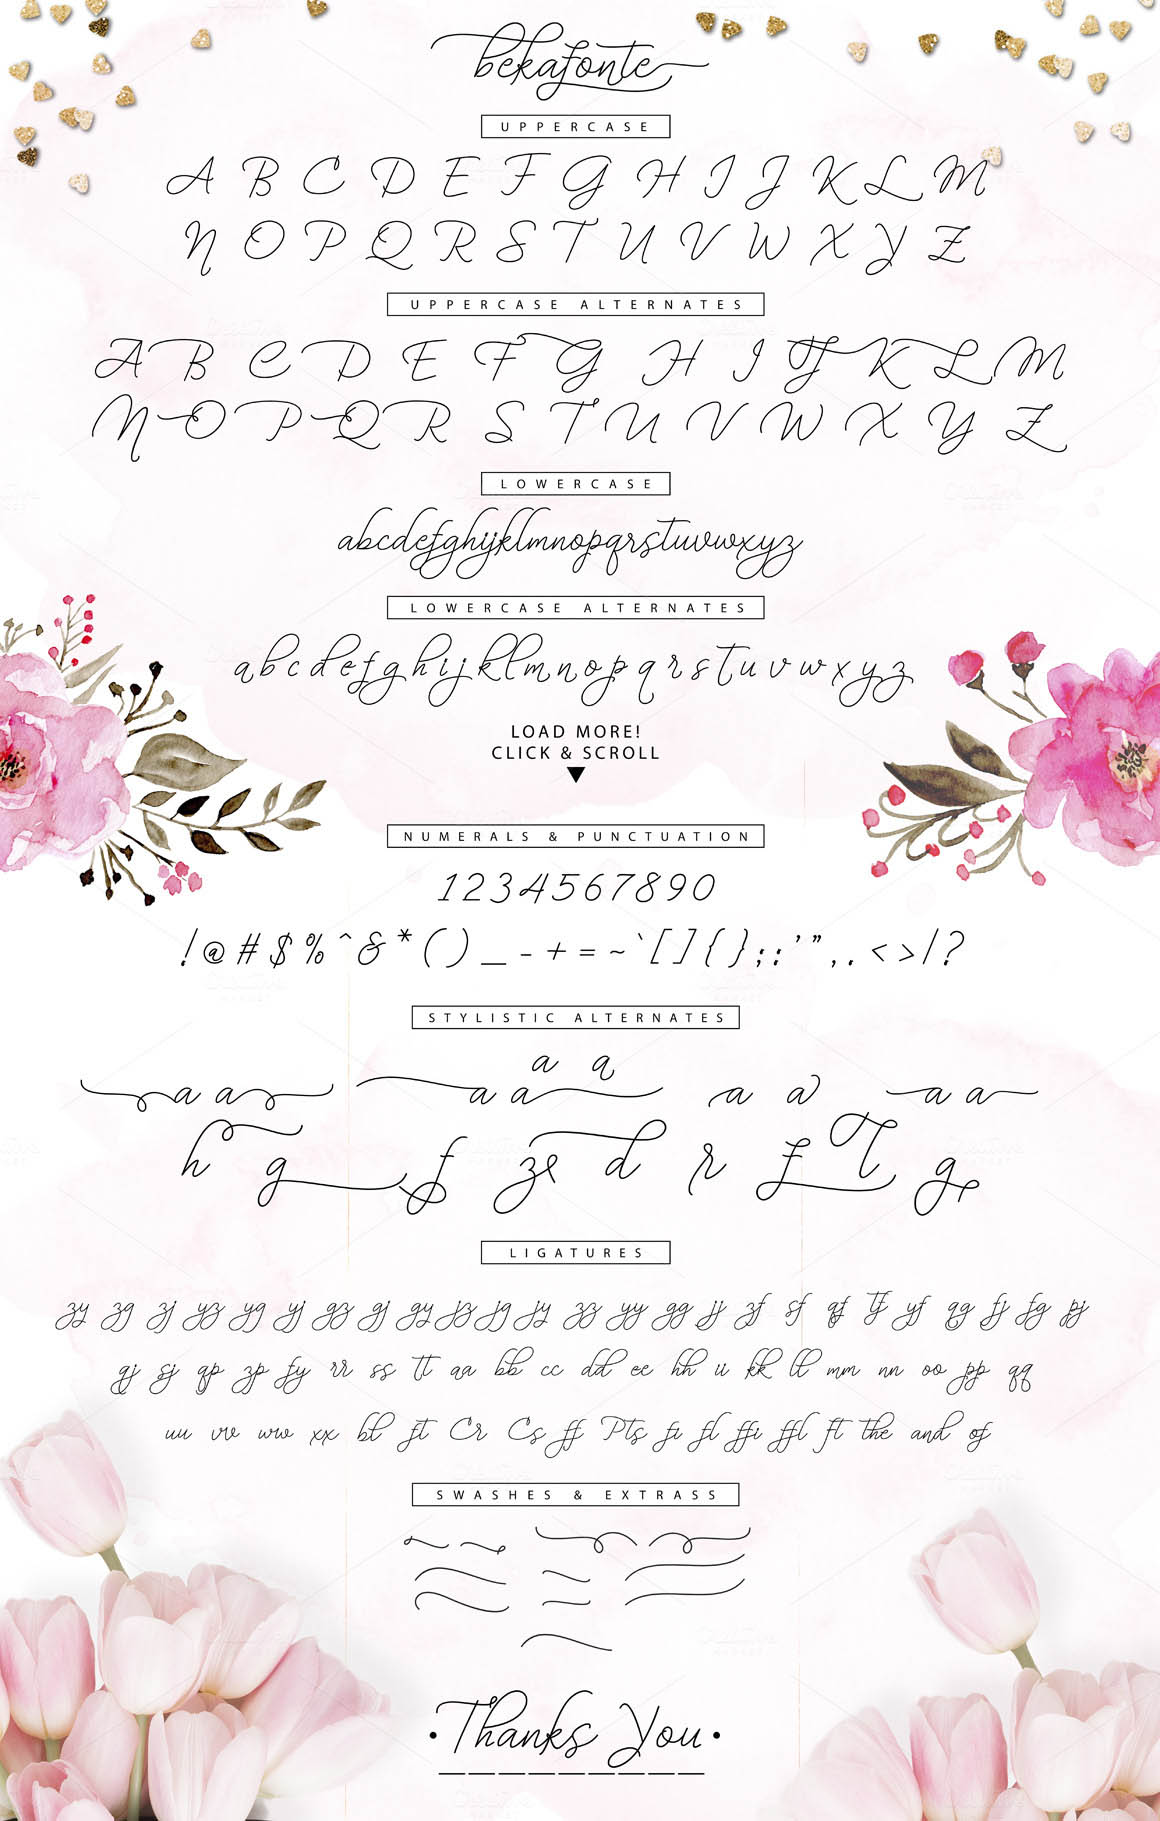 bekafonte
UPPERCASE
A B C D E F G H I J K L M
N O P Q R S T U V W X Y Z
UPPERCASE ALTERNATES
A B C D E F G H I J K L M
N O P Q R S T U V W X Y Z
LOWERCASE
abcdefghijklmnopqrstuvwxyz
LOWERCASE ALTERNATES
abcdefghijklmnopqrstuvwxyz
LOAD MORE!
CLICK & SCROLL
NUMERALS & PUNCTUATION
1234567890
!@#$%^&*()_-+=~`[]{};:'",.<>/?
STYLISTIC ALTERNATES
a a
a a a a a a a a
h g f z s d r f t g
LIGATURES
zy zg zj yz yg yj gz gj gy jz jg jy zz yy gg jj zf sf qf tf yf qg fj fg pj
qj sj qp zp fy rr ss tt aa bb cc dd ee hh ii kk ll mm nn oo pp qq
uu vv ww xx bl ft Cr Cs ff Pts fi fl ffi ffl ft the and of
SWASHES & EXTRASS
Thanks You